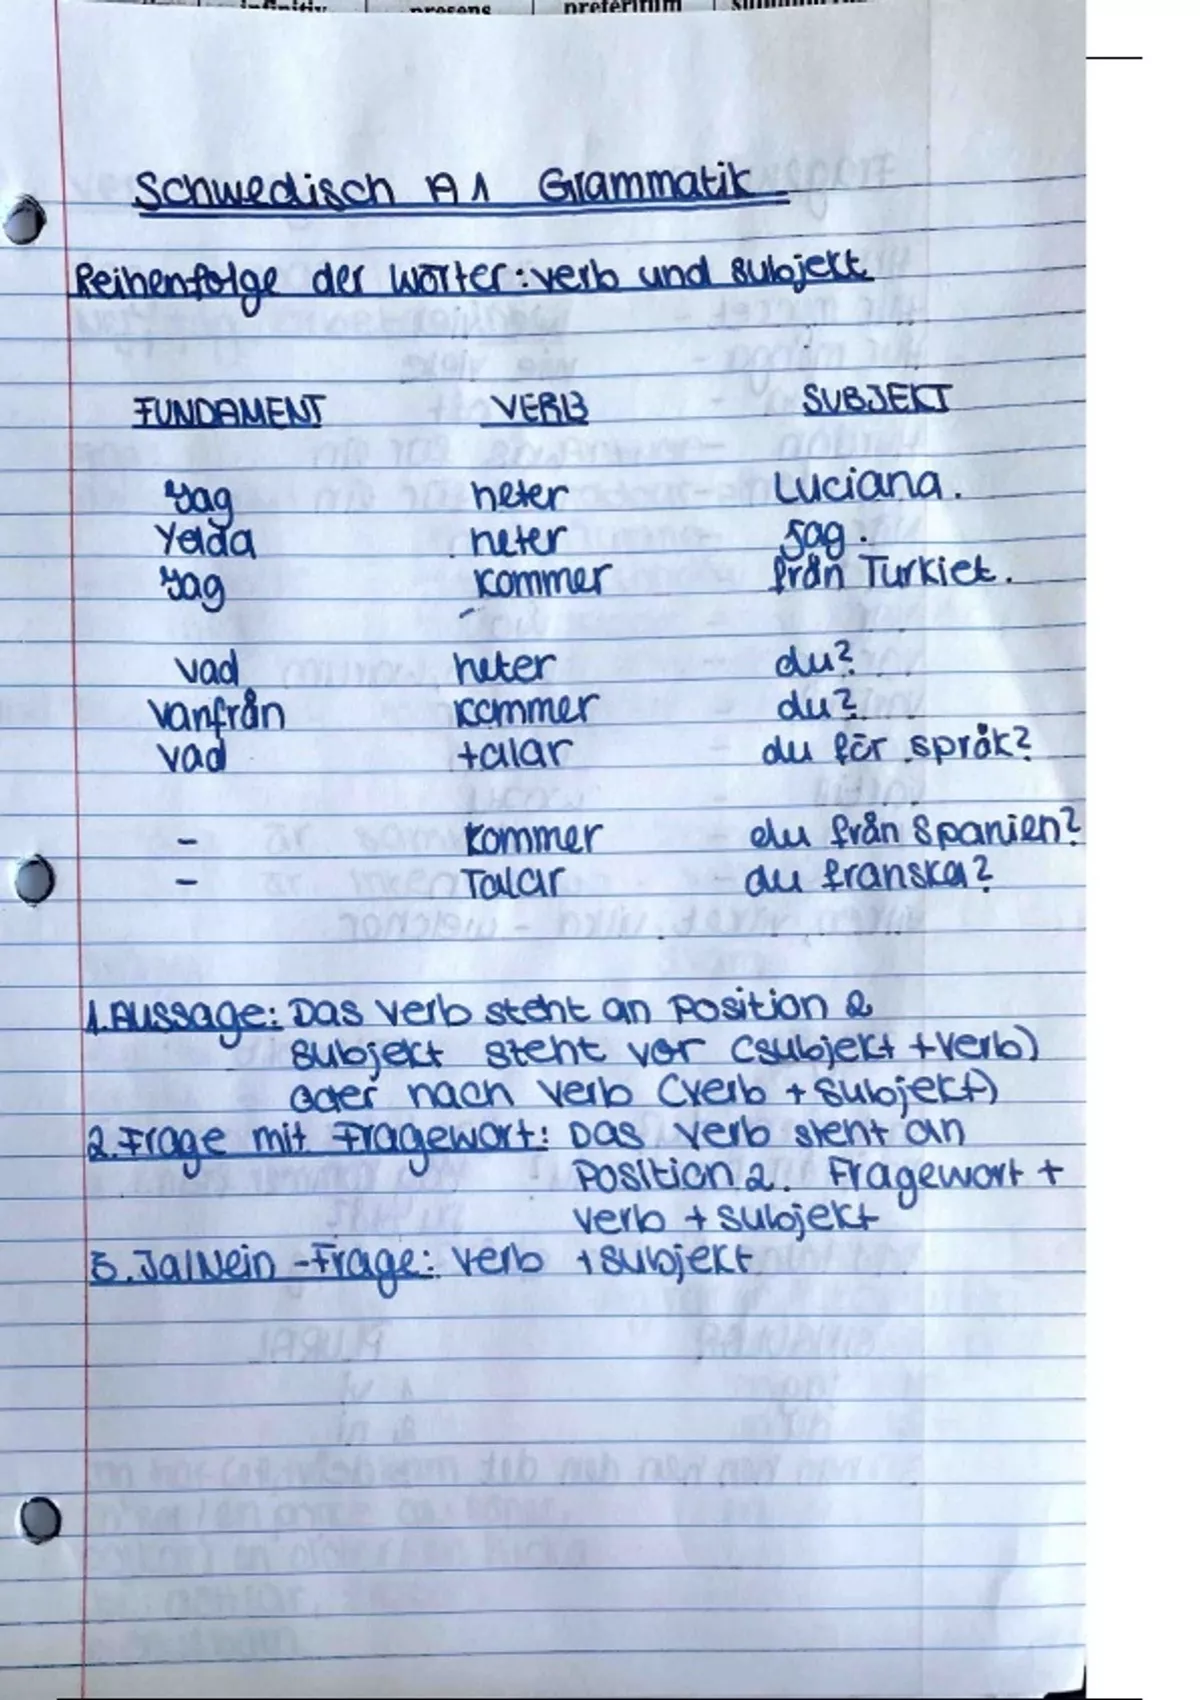 infinitiv presens preteritum
Schwedisch A1 Grammatik
Reihenfolge der Wörter: verb und subjekt
FUNDAMENT VERB SUBJEKT
Jag heter Luciana.
Yelda heter jag.
Jag kommer från Turkiet.
vad heter du?
vanfrån kommer du?
vad talar du för språk?
- kommer du från Spanien?
- Talar du franska?
1. Aussage: Das verb steht an Position 2
subjekt steht vor (subjekt + verb)
oder nach verb (verb + subjekt)
2. Frage mit Fragewort: Das verb steht an
Position 2. Fragewort +
verb + subjekt
3. Ja/Nein - Frage: verb + subjekt